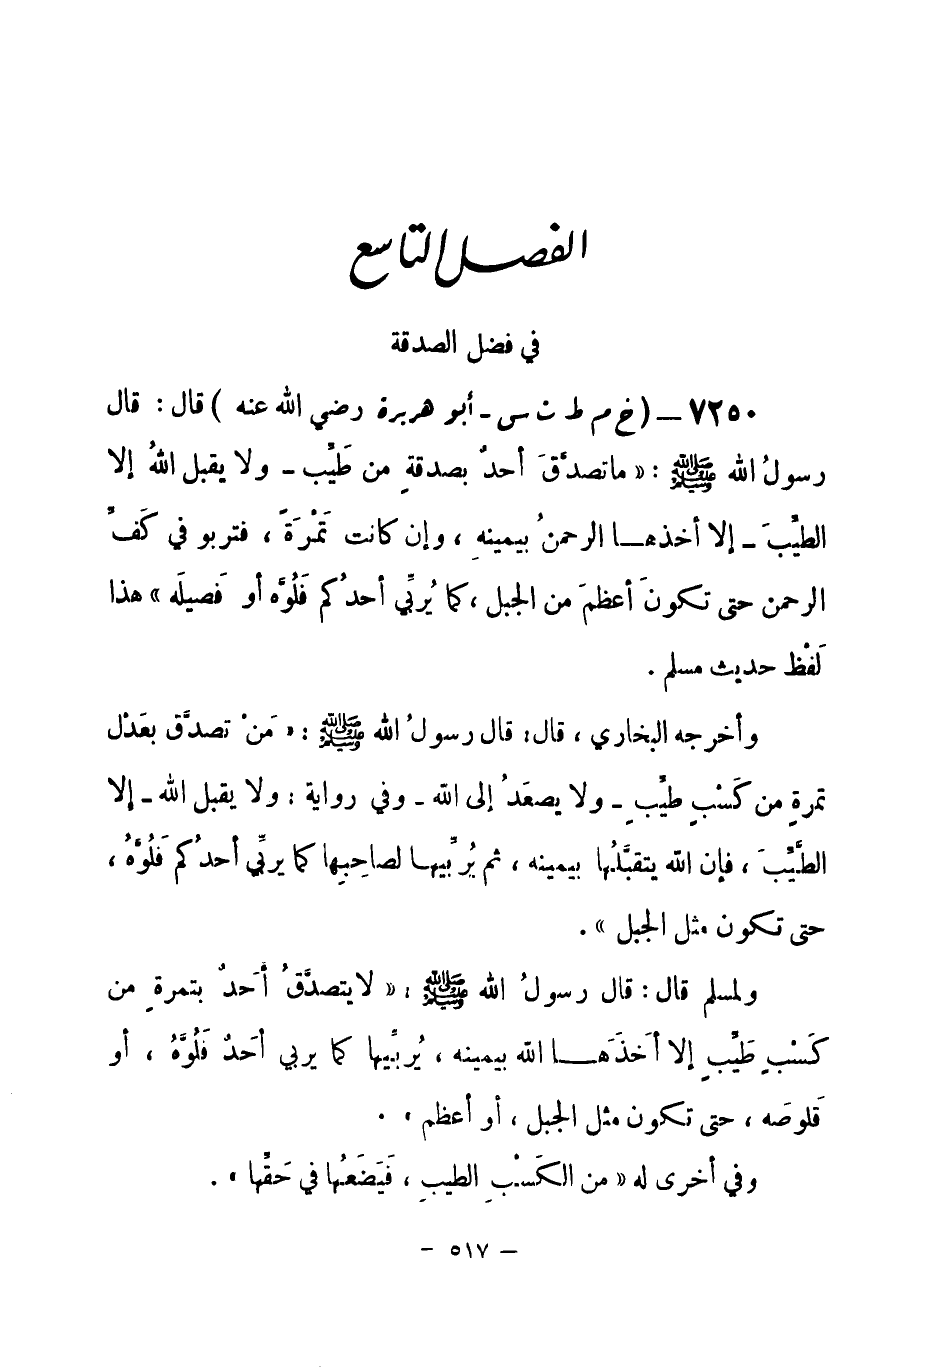 الفصل التاسع
في فضل الصدقة
٧٢٥٠ – ( خ م ط ت س - أبو هريرة رضي الله عنه ) قال : قال
رسولُ الله ﷺ : « ماتصدَّقَ أحدٌ بصدقةٍ من طَيِّب - ولا يقبل اللهُ إلا
الطيِّبَ - إلا أخذهـا الرحمنُ بيمينهِ ، وإن كانت تَمْرَةً ، فتربو في كَفِّ
الرحمن حتى تكونَ أعظمَ من الجبل ، كما يُربِّي أحدُكم فَلُوَّه أو فَصيلَه » هذا
لَفْظ حديث مسلم .
وأخرجه البخاري ، قال : قال رسولُ الله ﷺ : « مَنْ تصدَّق بعَدْل
تمرةٍ من كَسْبٍ طيِّبٍ - ولا يصعَدُ إلى الله - وفي رواية : ولا يقبل الله - إلا
الطَّيِّبَ ، فإن الله يتقبَّلُها بيمينه ، ثم يُربِّيهـا لصاحِبِها كما يربِّي أحدُكم فَلُوَّهُ ،
حتى تكون مثل الجبل » .
ولمسلم قال : قال رسولُ الله ﷺ : « لايتصدَّقُ أَحدٌ بتمرةٍ من
كَسْبٍ طَيِّبٍ إلا أَخذَهَـا الله بيمينه ، يُربِّيها كما يربي أحَدُكم فَلُوَّهُ ، أو
قَلوصَه ، حتى تكون مثل الجبل ، أو أعظم » .
وفي أخرى له « من الكَسْبِ الطيبِ ، فَيَضَعُها في حَقِّها » .
– ٥١٧ –